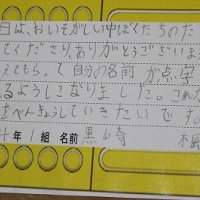 日は、おいそがしい中ぼくたちのた
てくださりありがとうございま
えてもらって自分の名前が点字
るようになりました。これか
べんきょうしていきたいです。
年1組 名前 黒崎